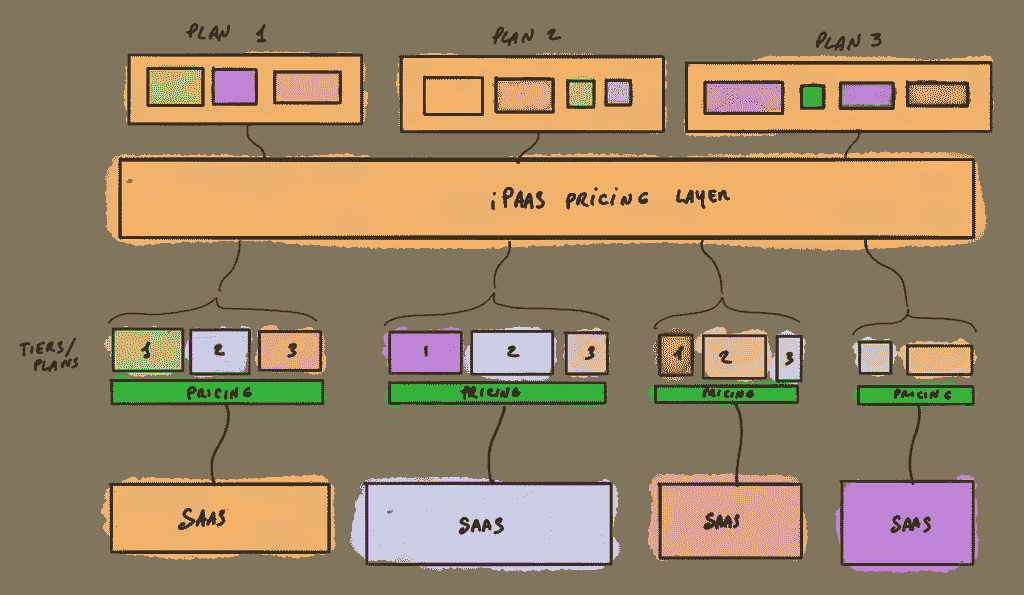 PLAN 1
PLAN 2
PLAN 3
iPAAS PRICING LAYER
TIERS/
PLANS
1 2 3
1 2 3
1 2 3
PRICING
PRICING
PRICING
PRICING
SAAS
SAAS
SAAS
SAAS